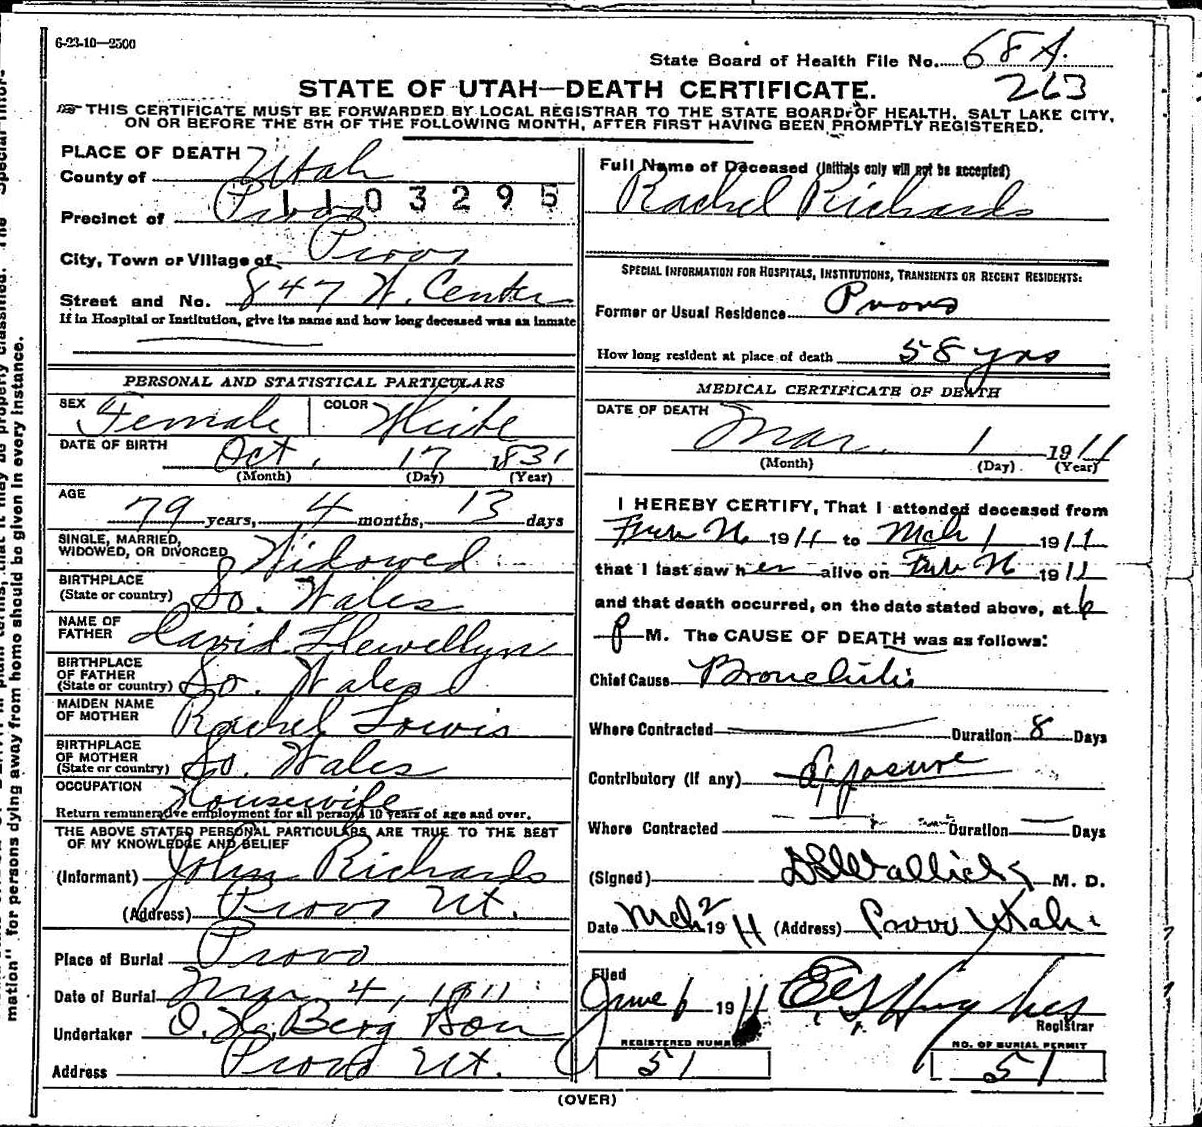 6-23-10—2500
State Board of Health File No. 68 A.
263
STATE OF UTAH—DEATH CERTIFICATE.
THIS CERTIFICATE MUST BE FORWARDED BY LOCAL REGISTRAR TO THE STATE BOARD OF HEALTH, SALT LAKE CITY,
ON OR BEFORE THE 5TH OF THE FOLLOWING MONTH, AFTER FIRST HAVING BEEN PROMPTLY REGISTERED.
PLACE OF DEATH
County of Utah
1103295
Precinct of Provo
City, Town or Village of Provo
Street and No. 847 W. Center
If in Hospital or Institution, give its name and how long deceased was an inmate
PERSONAL AND STATISTICAL PARTICULARS
SEX Female COLOR White
DATE OF BIRTH Oct. 17 1831
(Month) (Day) (Year)
AGE
79 years, 4 months, 13 days
SINGLE, MARRIED,
WIDOWED, OR DIVORCED Widowed
BIRTHPLACE
(State or country) So. Wales
NAME OF
FATHER David Llewellyn
BIRTHPLACE
OF FATHER
(State or country) So. Wales
MAIDEN NAME
OF MOTHER Rachel Lewis
BIRTHPLACE
OF MOTHER
(State or country) So. Wales
OCCUPATION Housewife
Return remunerative employment for all persons 10 years of age and over.
THE ABOVE STATED PERSONAL PARTICULARS ARE TRUE TO THE BEST
OF MY KNOWLEDGE AND BELIEF
(Informant) John Richards
(Address) Provo Ut.
Place of Burial Provo
Date of Burial Mar 4, 1911
Undertaker O. H. Berg Son
Address Provo Ut.
Full Name of Deceased (Initials only will not be accepted)
Rachel Richards
SPECIAL INFORMATION FOR HOSPITALS, INSTITUTIONS, TRANSIENTS OR RECENT RESIDENTS:
Former or Usual Residence Provo
How long resident at place of death 58 yrs
MEDICAL CERTIFICATE OF DEATH
DATE OF DEATH
Mar. 1 1911
(Month) (Day) (Year)
I HEREBY CERTIFY, That I attended deceased from
1911 to Mch 1 1911
that I last saw her alive on 1911
and that death occurred, on the date stated above, at 6
P M. The CAUSE OF DEATH was as follows:
Chief Cause Bronchitis
Where Contracted Duration 8 Days
Contributory (if any) Exposure
Where Contracted Duration Days
(Signed) M. D.
Date Mch 2 1911 (Address) Provo Utah
Filed
June 6 1911 Hughes
Registrar
REGISTERED NUMBER NO. OF BURIAL PERMIT
51 51
(OVER)
mation" for persons dying away from home should be given in every instance.